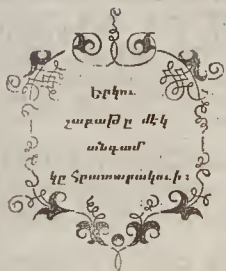 Երկու
շաբաթը մէկ
անգամ
կը Հրատարակուի։